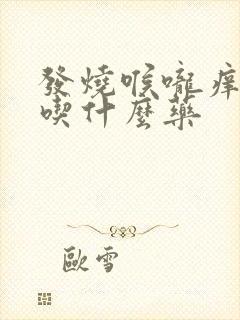 發燒喉嚨痒
喫什麼藥
歐雪